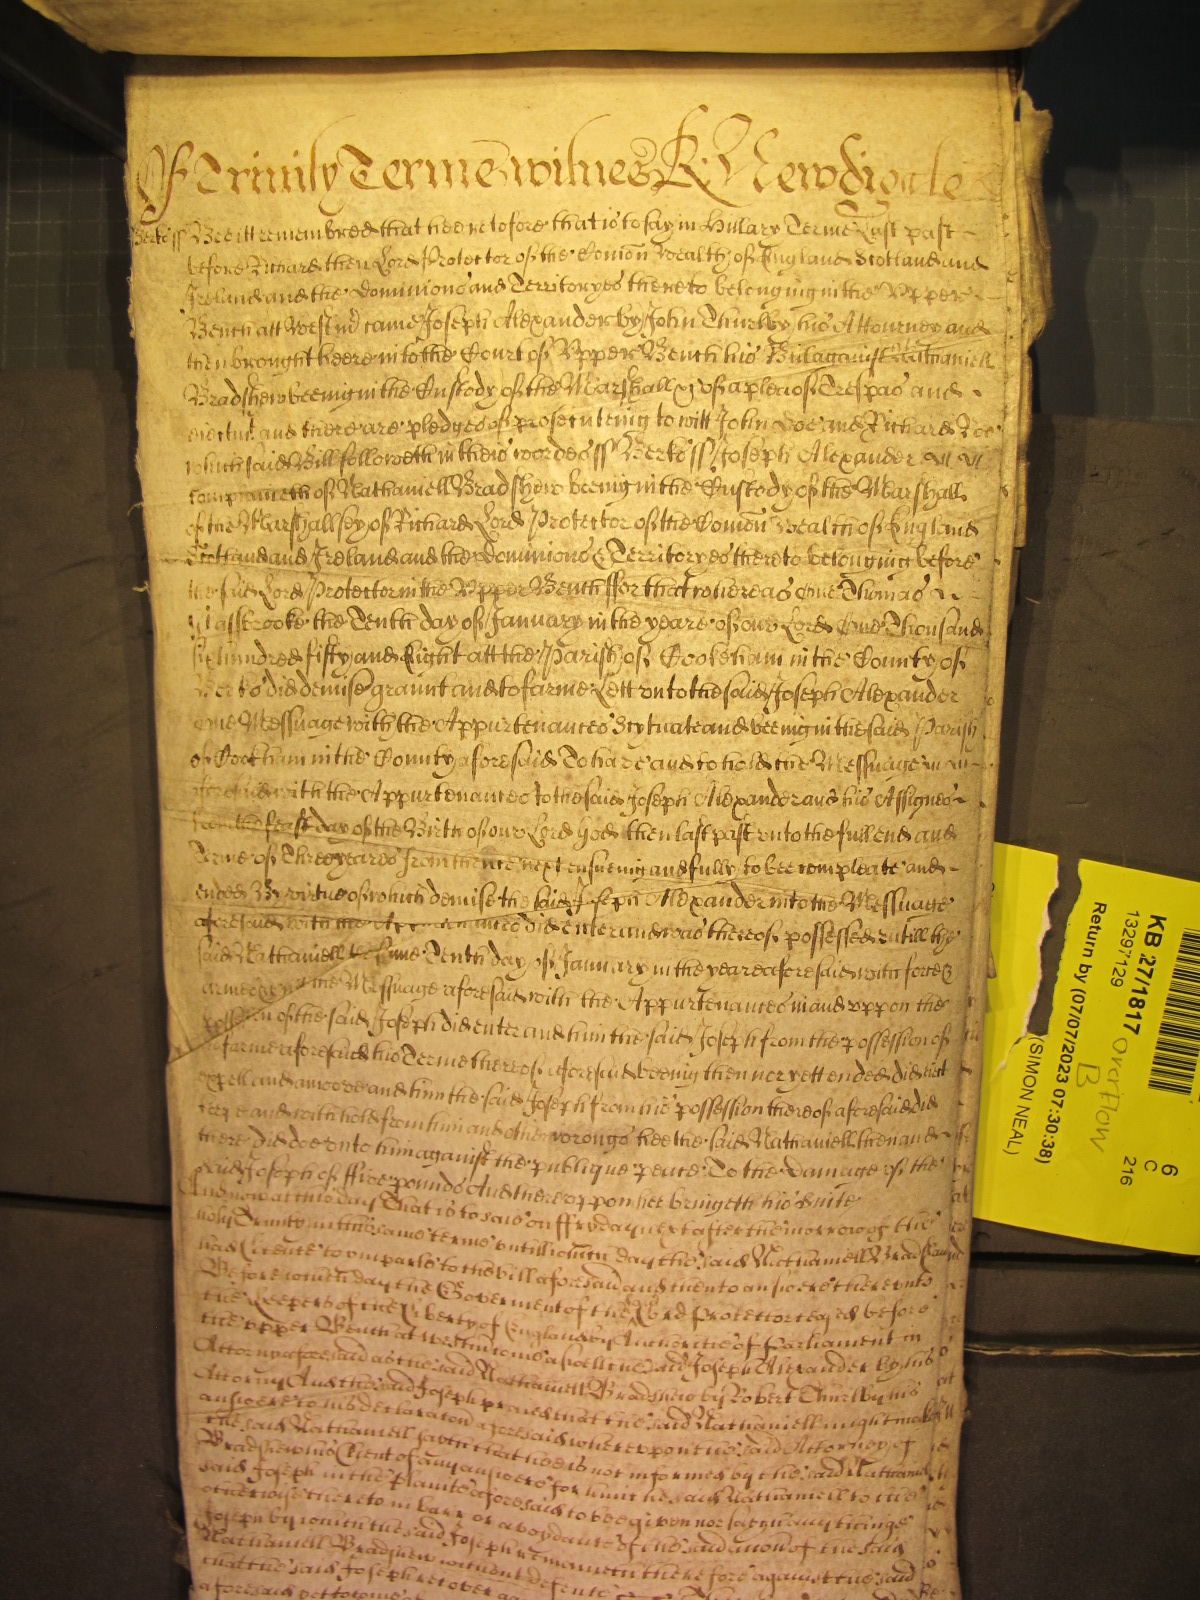 Of Trinity Terme witnes R: Newdigate
Berks ss Bee itt remembred that heeretofore that is to say in Hillary Terme Last past
before Richard then Lord Protector of the Comon Wealth of England Scotland and
Ireland and the Dominions and Territoryes thereto belonging in the Vpper
Bench att Westmr came Joseph Alexander by John Thurlby his Attourney and
then brought heere into the Court of Vpper Bench his Bill against Nathaniell
Bradshew beeing in the Custody of the Marshall &c of a plea of Trespas and
eiectmt and there are pledges of prosecuteing to witt John Doe and Richard Roe
which said Bill followeth in theis wordes ss Berks ss Joseph Alexander
complaineth of Nathaniell Bradshew beeing in the Custody of the Marshall
of the Marshallsey of Richard Lord Protector of the Comon wealth of England
Scotland and Ireland and the Dominions & Territoryes thereto belonging before
the said Lord Protector in the Vpper Bench ffor that whereas one Thomas
the Tenth day of January in the yeare of our Lord One Thousand
Six hundred fifty and Eight att the Parish of Cookeham in the County of
Berks did demise graunt and to farme Lett vnto the said Joseph Alexander
one Messuage with the Appurtenances Scytuate and beeing in the said Parish
of Cookham in the County aforesaid To have and to hold the Messuage
aforesaid with the Appurtenances to the said Joseph Alexander and his Assignes
from the feast day of the Birth of our Lord God then last past vnto the full end and
Terme of Three yeares from thence next ensueing and fully to bee compleate and
ended By virtue of which demise the said Joseph Alexander into the Messuage
aforesaid with the Appurtenances did enter and was thereof possessed vntill the
said Nathaniell the same Tenth day of January in the yeare aforesaid with force &
armes &c in the Messuage aforesaid with the Appurtenances in and vppon the
possession of the said Joseph did enter and him the said Joseph from the possession of
his farme aforesaid his Terme thereof aforesaid beeing then nor yett ended did eiect
expell and amoove and him the said Joseph from his possession thereof aforesaid did
keepe and withhold from him and other wrongs hee the said Nathaniell then and
there did doe vnto him against the publique peace To the damage of the
said Joseph of ffive pounds And thereuppon hee bringeth his suite
And now att this day That is to saie on ffryday next after the morrow of the
holy Trinity in this same terme vntill which day the said Nathaniell Bradshew
had Licence to imparle to the bill aforesaid and then to answere therevnto
Before which day the Goverment of the Lord Protector ceased before
the Keepers of the Liberty of England by Authoritie of Parliament in
the vpper Bench at westminster aswell the said Joseph Alexander by his
Attorny aforesaid as the said Nathaniell Bradshew by Robert Thurlby his
Attorny And the said Joseph prayed that the said Nathaniell might make
answere to his declaraton aforesaid wherevppon the said Attorney of
the said Nathaniell saith that hee is not informed by the said Nathaniell
Bradshew his Client of any answere for him the said Nathaniell to the
said Joseph in the plaint aforesaid to bee given nor saith any thinge
otherwise thereto in barr or avoydance of the said accon of the said
Joseph by which the said Joseph remaineth therefore against the said
Nathaniell Bradshew without defence
that the said Joseph recover
aforesaid yett to come
KB 27/1817
13297129
Overflow
B
Return by (07/07/2023 07:30:38)
(SIMON NEAL)
6
C
216